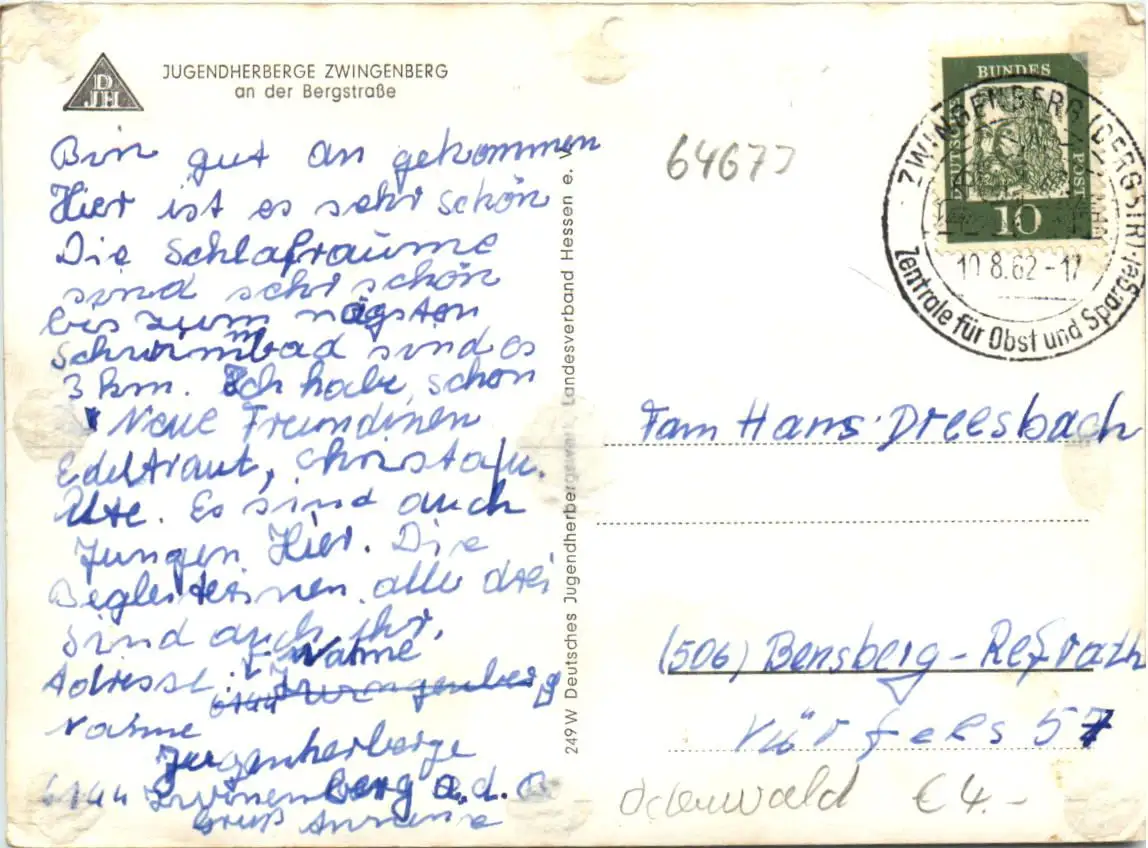 DJH
JUGENDHERBERGE ZWINGENBERG
an der Bergstraße
Bin gut an gekommen
Hier ist es sehr schön
Die Schlafräume
sind sehr schön
bis zum nägsten
Schwimmbad sind es
3 km. Ich habe schon
Neue Freundinen
Edeltraut, Christa, u.
Ute. Es sind auch
Jungen Hier. Die
Begleiterinnen alle drei
sind auch ihr,
Adresse: Nahme
6144
Nahme
Jugenherberge
6144 Zwinenberg a.d.B
Gruß
249W Deutsches Jugendherbergswerk Landesverband Hessen e. V.
64673
BUNDES
DEUTSCHE
POST
10
ZWINGENBERG (BERGSTR)
10.8.62-17
Zentrale für Obst und Spargel
Fam Hans Dreesbach
(506) Bensberg-Refrath
Vürfels 57
Odenwald €4.-